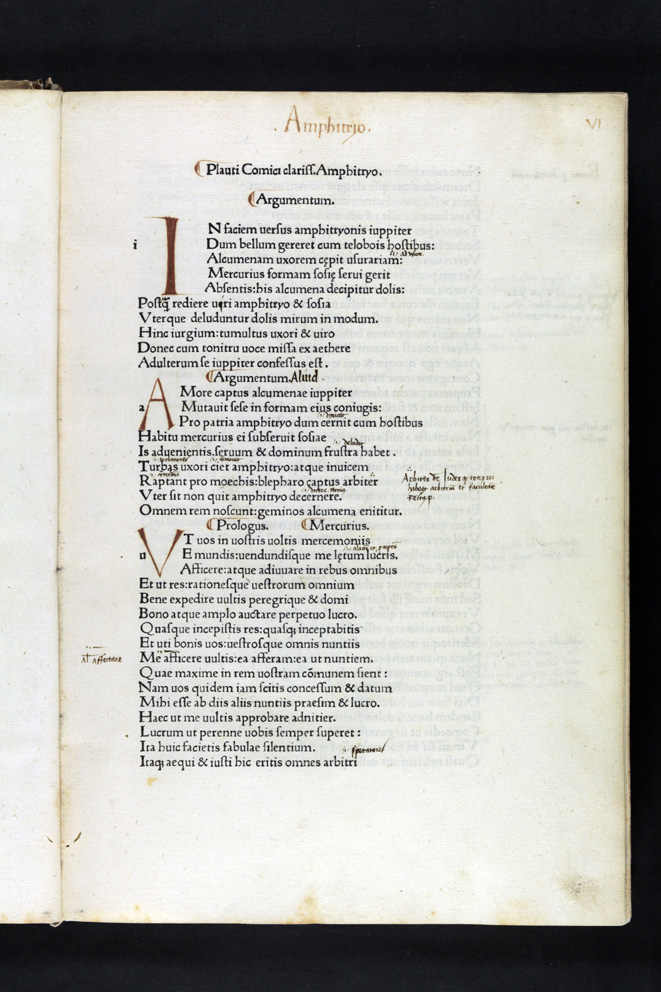 . Amphitryo.
VI
Plauti Comici clariss. Amphitryo.
Argumentum.
i
IN faciem uersus amphitryonis iuppiter
Dum bellum gereret cum telobois hostibus:
Alcumenam uxorem cępit usurariam:
Mercurius formam sosię serui gerit
Absentis: his alcumena decipitur dolis:
Postꝗ̃ rediere ueri amphitryo & sosia
Vterque deluduntur dolis mirum in modum.
Hinc iurgium: tumultus uxori & uiro
Donec cum tonitru uoce missa ex aethere
Adulterum se iuppiter confessus est.
Argumentum. Aliud.
a
AMore captus alcumenae iuppiter
Mutauit sese in formam eius coniugis:
Pro patria amphitryo dum cernit cum hostibus
Habitu mercurius ei subseruit sosiae
Is aduenientis. seruum & dominum frustra habet.
Turbas uxori ciet amphitryo: atque inuicem
Raptant pro moechis: blepharo captus arbiter
Vter sit non quit amphitryo decernere.
Omnem rem noscunt: geminos alcumena enititur.
Prologus. Mercurius.
u
VT uos in uostris uoltis mercemoniis
Emundis: uendundisque me lętum lucris.
Afficere: atque adiuuare in rebus omnibus
Et ut res: rationesque uestrorum omnium
Bene expedire uultis peregrique & domi
Bono atque amplo auctare perpetuo lucro.
Quasque incepistis res: quasq; inceptabitis
Et uti bonis uos: uestrosque omnis nuntiis
Me afficere uultis: ea afferam: ea ut nuntiem.
Quae maxime in rem uostram cõmunem sient:
Nam uos quidem iam scitis concessum & datum
Mihi esse ab diis aliis nuntiis praesim & lucro.
Haec ut me uultis approbare adnitier.
Lucrum ut perenne uobis semper superet:
Ita huic facietis fabulae silentium.
Itaq; aequi & iusti hic eritis omnes arbitri